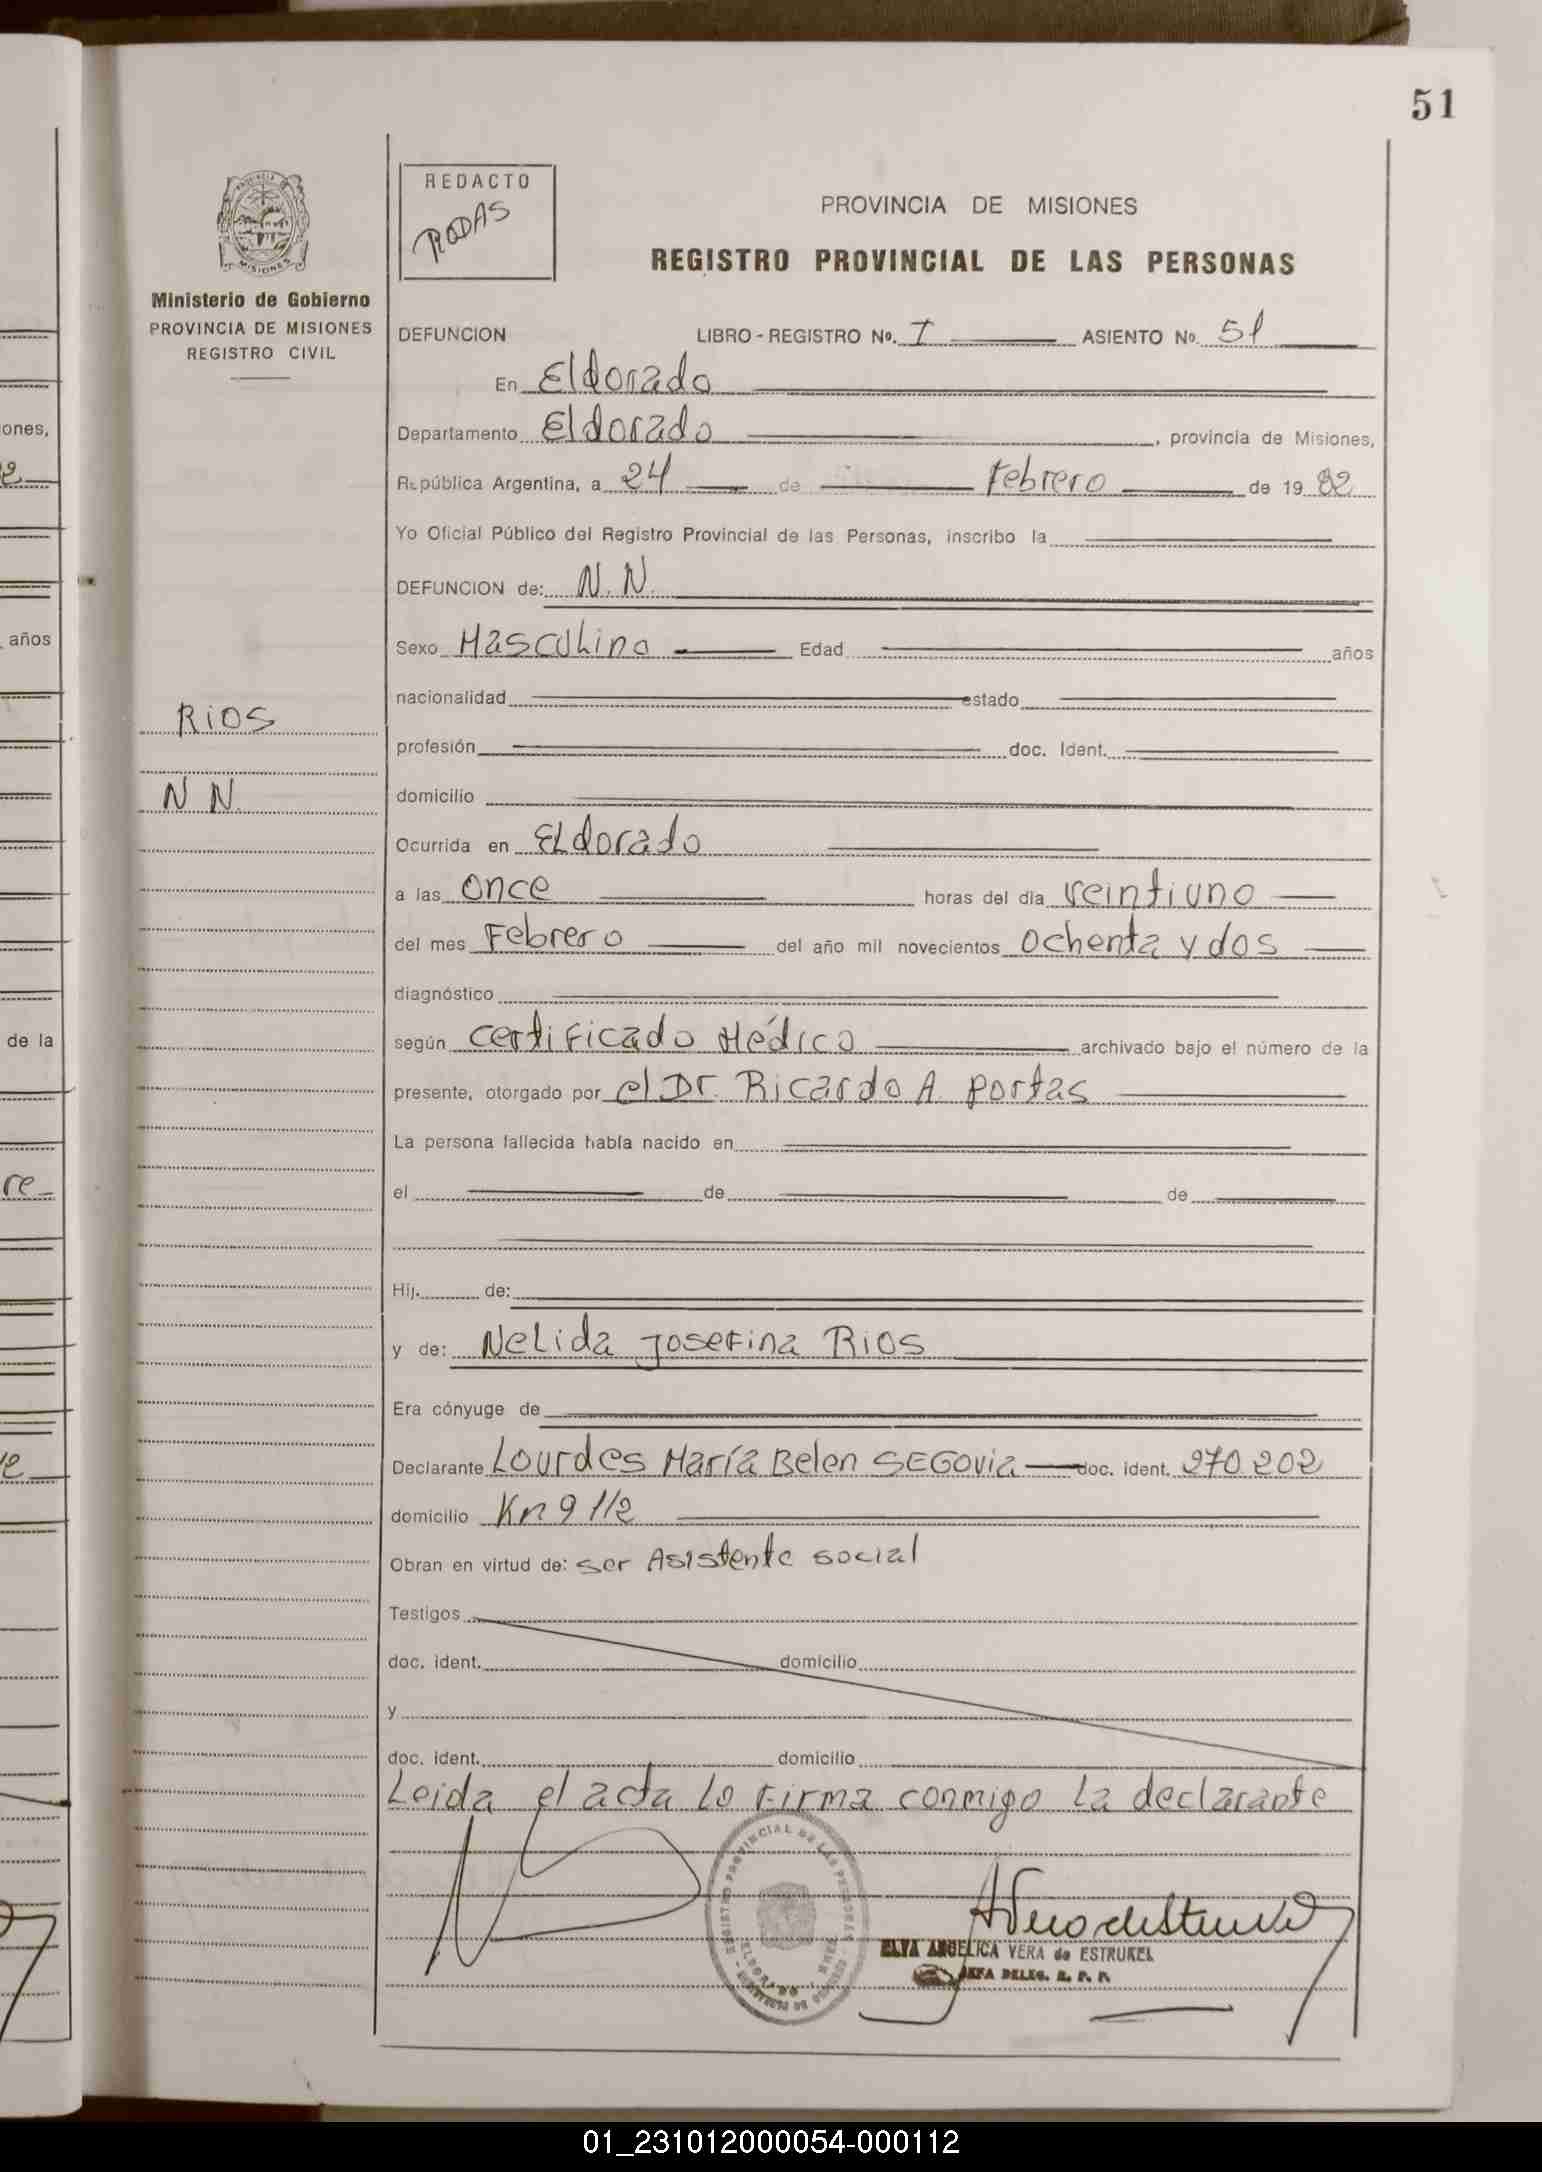 51
REDACTO
RODAS
PROVINCIA DE MISIONES
REGISTRO PROVINCIAL DE LAS PERSONAS
MISIONES
Ministerio de Gobierno
PROVINCIA DE MISIONES
REGISTRO CIVIL
DEFUNCION LIBRO-REGISTRO No. I ASIENTO No. 51
En Eldorado
Departamento Eldorado, provincia de Misiones,
República Argentina, a 24 de Febrero de 1982
Yo Oficial Público del Registro Provincial de las Personas, inscribo la
DEFUNCION de: N.N.
Sexo Masculino Edad años
nacionalidad estado
RIOS
profesión doc. Ident.
N N.
domicilio
Ocurrida en ELdorado
a las once horas del día veintiuno
del mes Febrero del año mil novecientos ochenta y dos
diagnóstico
según certificado Médico archivado bajo el número de la
presente, otorgado por el Dr. Ricardo A. portas
La persona fallecida había nacido en
el de de
Hij. de:
y de: Nelida Josefina Rios
Era cónyuge de
Declarante Lourdes María Belen SEGOVIA doc. ident. 270.202
domicilio Km 9 1/2
Obran en virtud de: ser Asistente social
Testigos
doc. ident. domicilio
y
doc. ident. domicilio
Leida el acta lo firma conmigo la declarante
REGISTRO PROVINCIAL DE LAS PERSONAS
ELDORADO
ELVA ANGELICA VERA de ESTRUKEL
JEFA DELEG. R. P. P.
ones,
años
de la
re
01_231012000054-000112